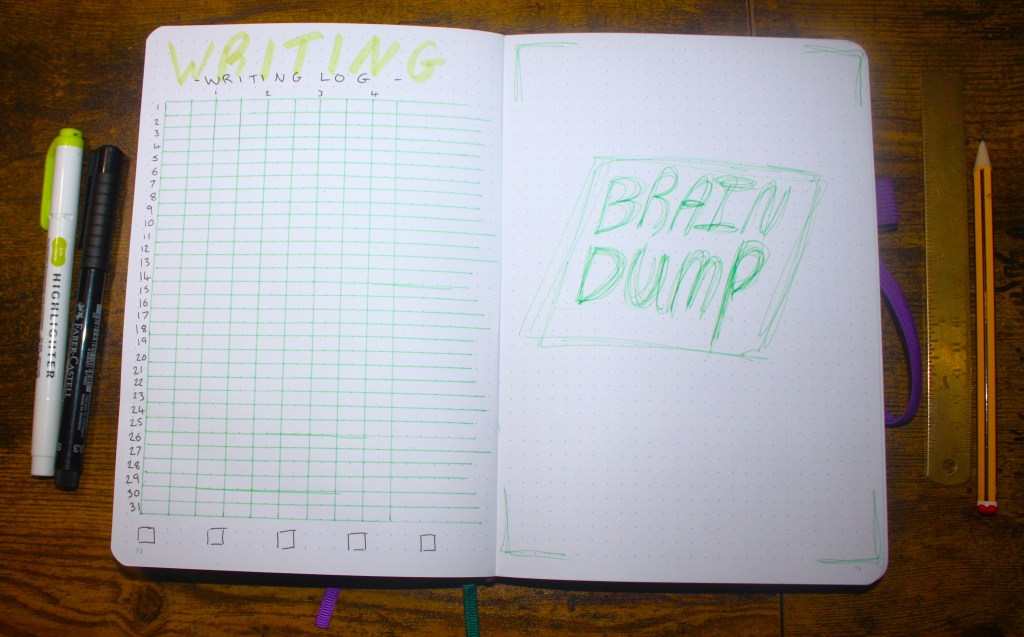 WRITING
- WRITING LOG -
1 2 3 4
1
2
3
4
5
6
7
8
9
10
11
12
13
14
15
16
17
18
19
20
21
22
23
24
25
26
27
28
29
30
31
BRAIN
DUMP
HIGHLIGHTER
FABER-CASTELL